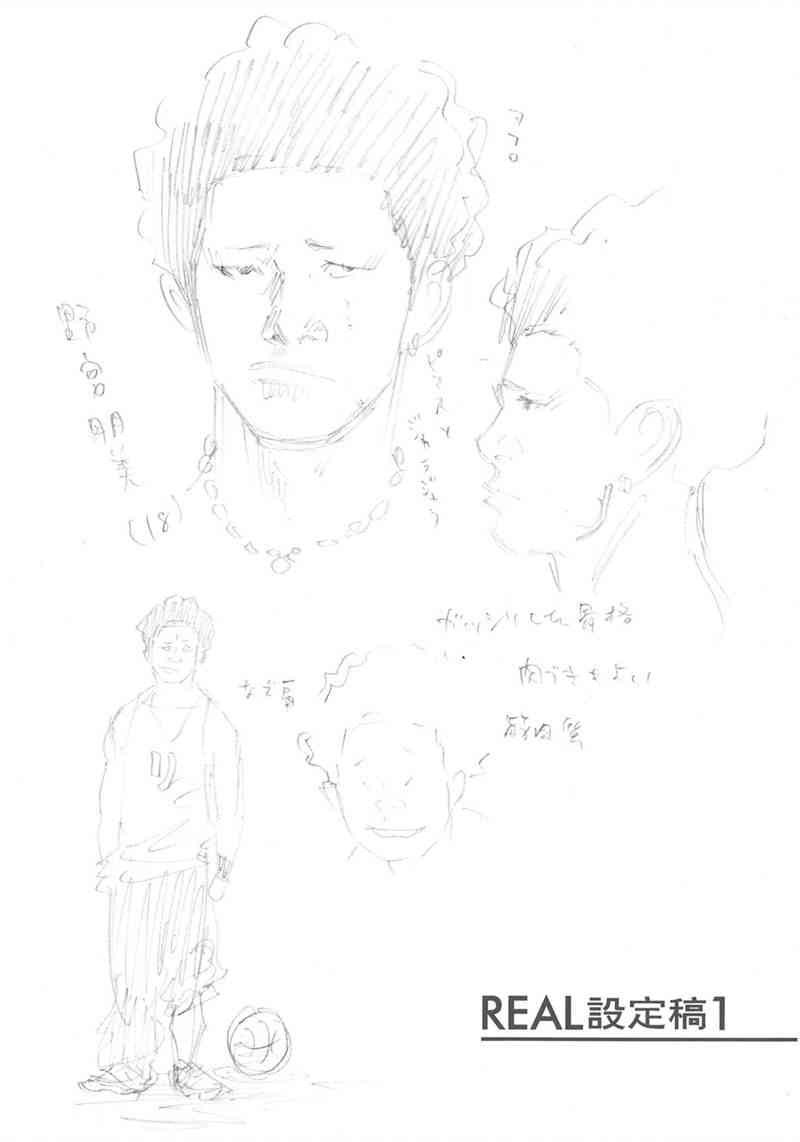 アフロ
野宮朋美
(18)
ピアスと
ジャラジャラ
ガッシリした骨格
肉づきもよい
筋肉質
なで肩
REAL設定稿1